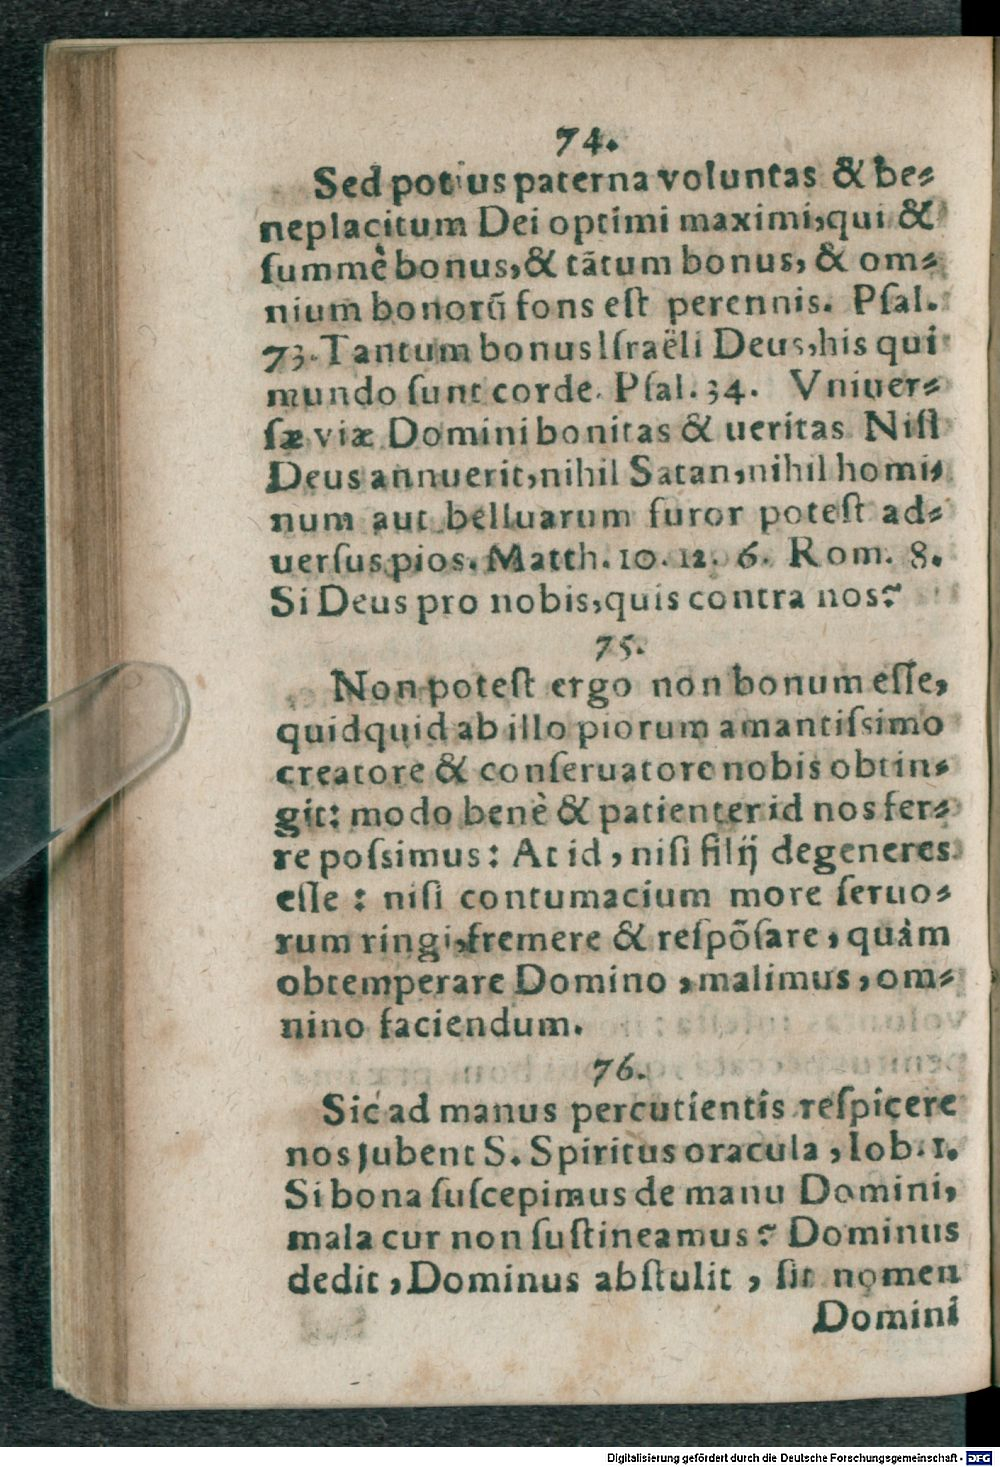 74.
Sed potius paterna voluntas & be-
neplacitum Dei optimi maximi, qui &
ſummè bonus, & tãtum bonus, & om-
nium bonorũ fons eſt perennis. Pſal.
73. Tantum bonus Iſraëli Deus, his qui
mundo ſunt corde. Pſal. 34. Vniuer-
ſæ viæ Domini bonitas & ueritas Niſi
Deus annuerit, nihil Satan, nihil homi-
num aut belluarum furor poteſt ad-
uerſus pios. Matth. 10. 12. 6. Rom. 8.
Si Deus pro nobis, quis contra nos?
75.
Non poteſt ergo non bonum eſſe,
quidquid ab illo piorum amantiſsimo
creatore & conſeruatore nobis obtin-
git: modo benè & patienter id nos fer-
re poſsimus: At id, niſi filij degeneres
eſſe: niſi contumacium more ſeruo-
rum ringi, fremere & reſpõſare, quàm
obtemperare Domino, malimus, om-
nino faciendum.
76.
Sic ad manus percutientis reſpicere
nos jubent S. Spiritus oracula, Iob. 1.
Si bona ſuſcepimus de manu Domini,
mala cur non ſuſtineamus? Dominus
dedit, Dominus abſtulit, ſit nomen
Domini
Digitalisierung gefördert durch die Deutsche Forschungsgemeinschaft - DFG